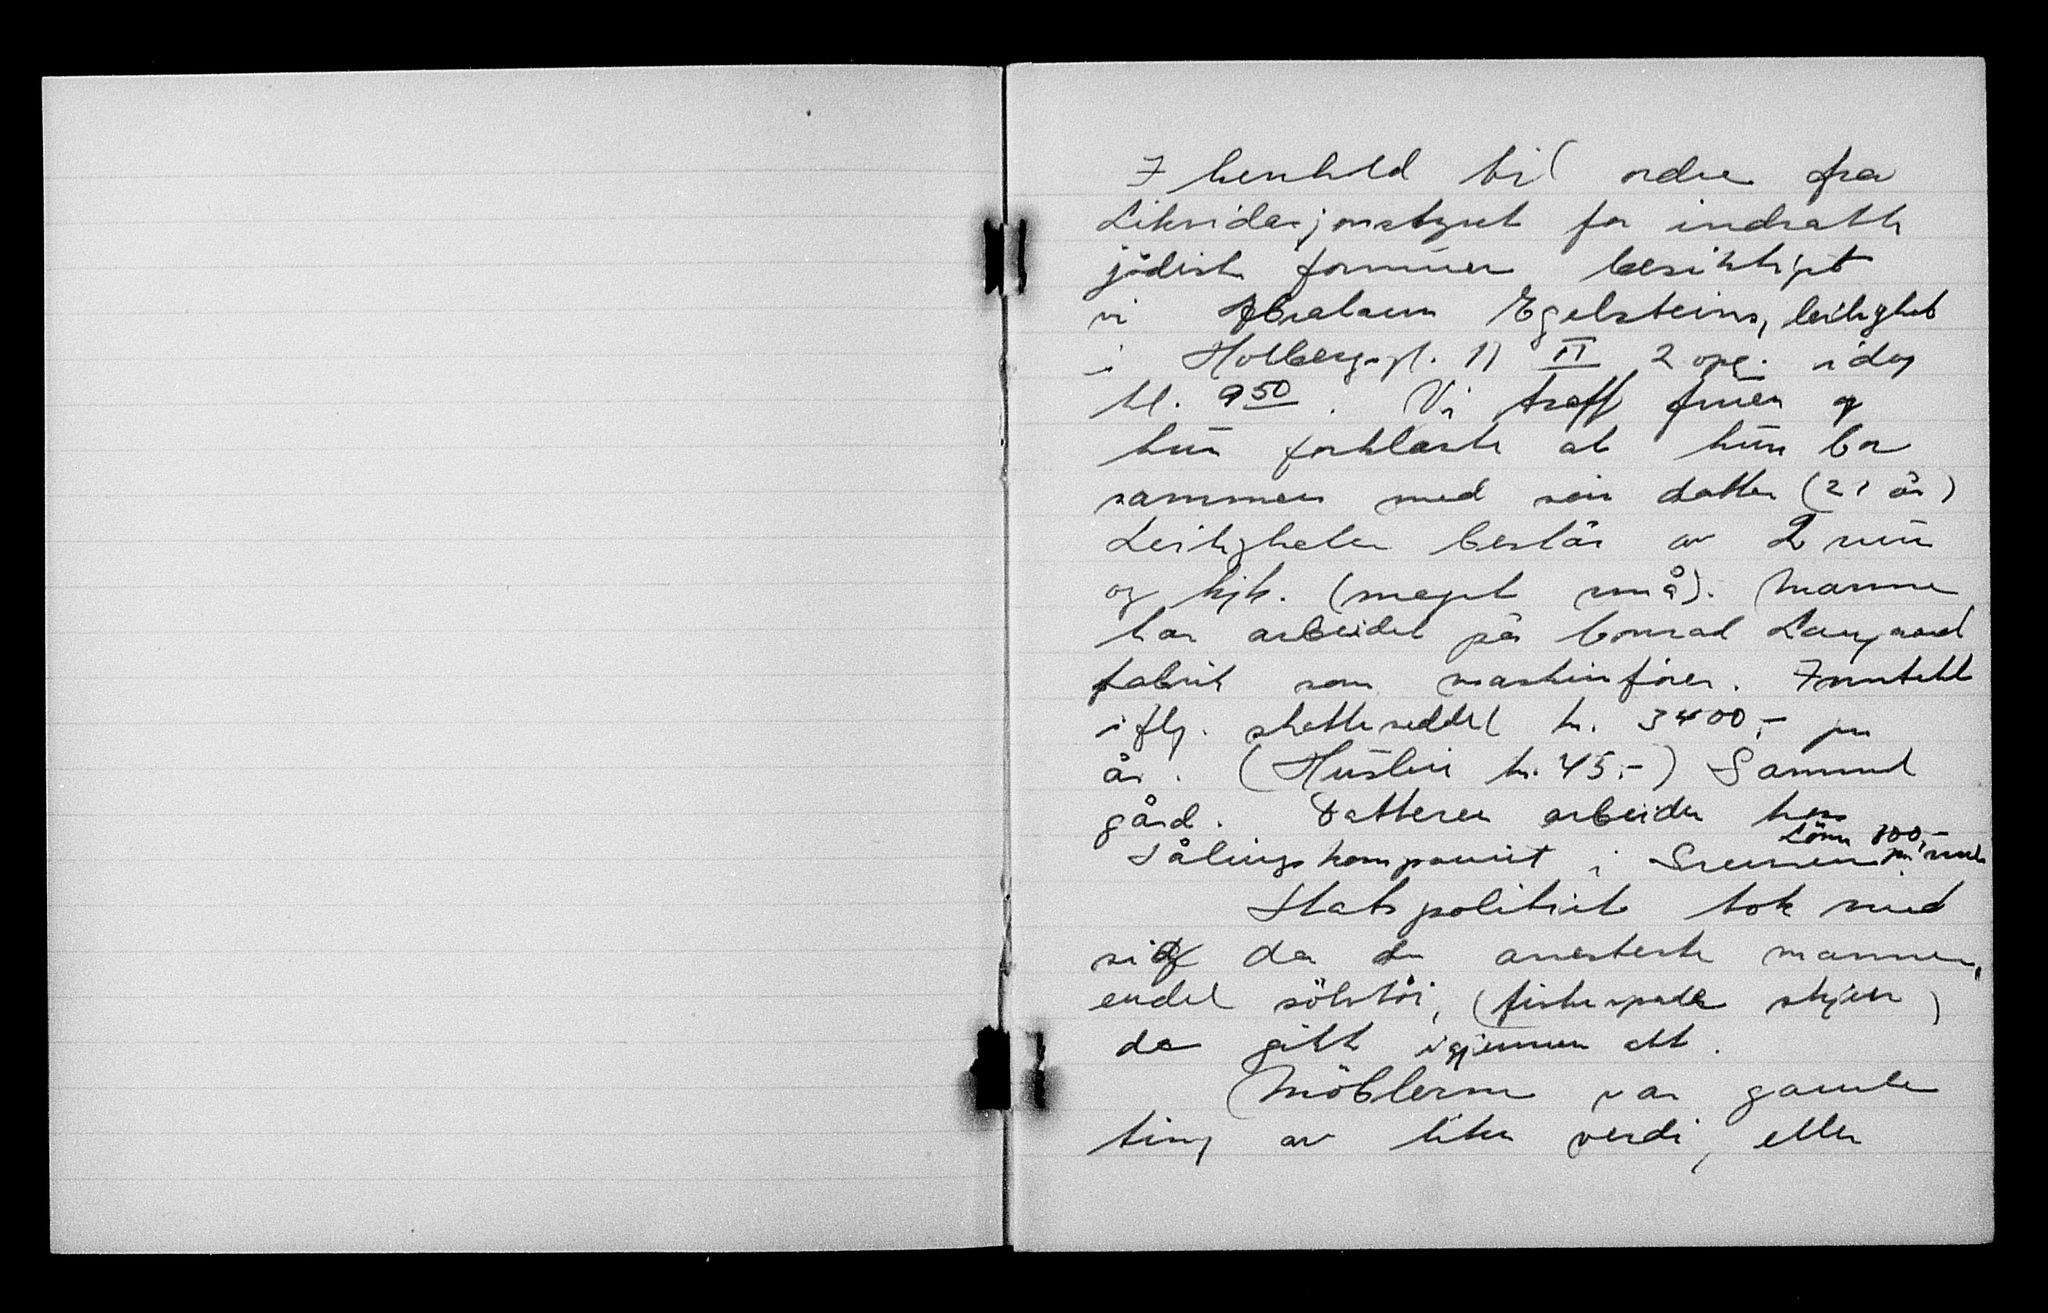 I henhold til ordre fra
Likvidasjonsstyret for inndratte
jødiske formuer besiktiget
vi Abraham Egelsteins, leilighet
i Holbergsgt. 11 II 2 opg. idag
kl. 9 50. Vi traff fruen og
hun forklarte at hun bor
sammen med sin datter (21 år)
Leiligheten består av 2 rum
og kjk. (meget små). Mannen
har arbeidet på Conrad Langaard
fabrik som maskinfører. Inntekt
iflg. skatteseddel kr. 3400,- pr
år. (Husleie kr. 45.-)
gård. Datteren arbeider hos
Lönn 100,-
Sålingskompaniet i pr. mnd
Statspolitiet tok med
sig da de arresterte mannen,
endel sölvtöi, (fiskespade skjeer)
da gikk igjennem alt.
Möblerne var gamle
ting av liten verdi, eller